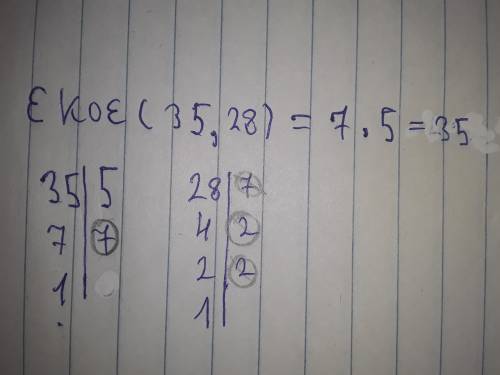 ЕКОЕ(35,28) = 7.5=35
35|5 28|7
7|7 4|2
1| 2|2
1|